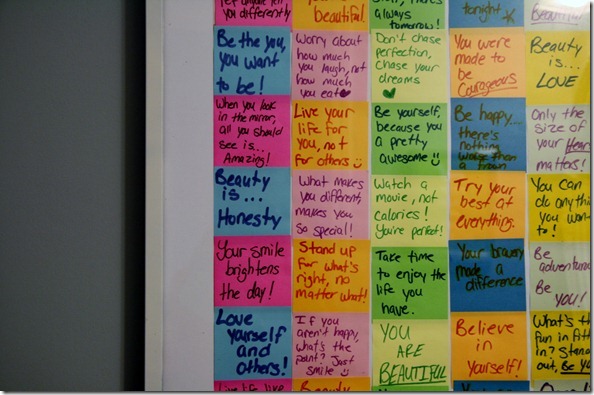 you differently
beautiful.
always
tomorrow!
tonight
Beautiful
Be the you,
you want
to be!
Worry about
how much
you laugh, not
how much
you eat
Don't chase
perfection,
chase your
dreams
You were
made to
be
Courageous
Beauty
is...
LOVE
When you look
in the mirror,
all you should
see is...
Amazing!
Live your
life for
you, not
for others
Be yourself,
because you
a pretty
awesome
Be happy...
there's
nothing
worse than
a frown
Only the
size of
your Heart
matters!
Beauty
is...
Honesty
What makes
you different,
makes you
so special!
Watch a
movie, not
calories!
You're perfect!
Try your
best at
everything.
You can
do anything
you want
to!
Your smile
brightens
the day!
Stand up
for what's
right, no
matter what!
Take time
to enjoy the
life you
have.
Your bravery
made a
difference
Be
adventurous
Be
YOU!
Love
yourself
and
others!
If you
aren't happy,
what's the
point? Just
smile
YOU
ARE
BEAUTIFUL
Believe
in
yourself!
What's the
fun in fitt
in? Stand
out, Be you
Live life like
Beauty